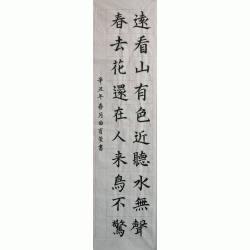 遠看山有色近聽水無聲
春去花還在人来鳥不驚
辛丑年春月田百發書